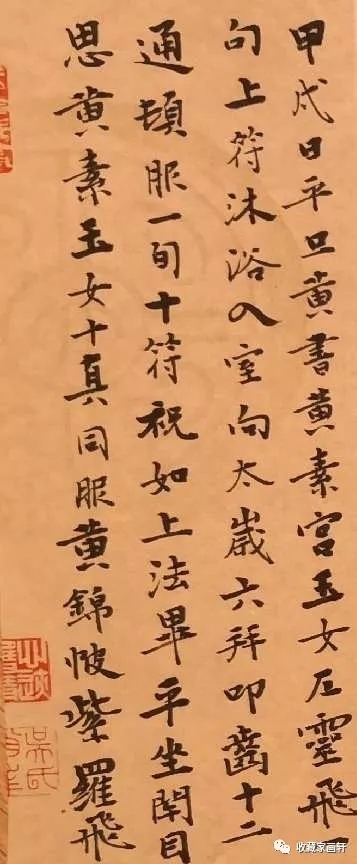 甲戌日平旦黄書黄素宫玉女左靈飛一
旬上符沐浴入室向太歲六拜叩齒十二
通頓服一旬十符祝如上法畢平坐閉目
思黄素玉女十真同服黄錦帔紫羅飛
收藏家画轩